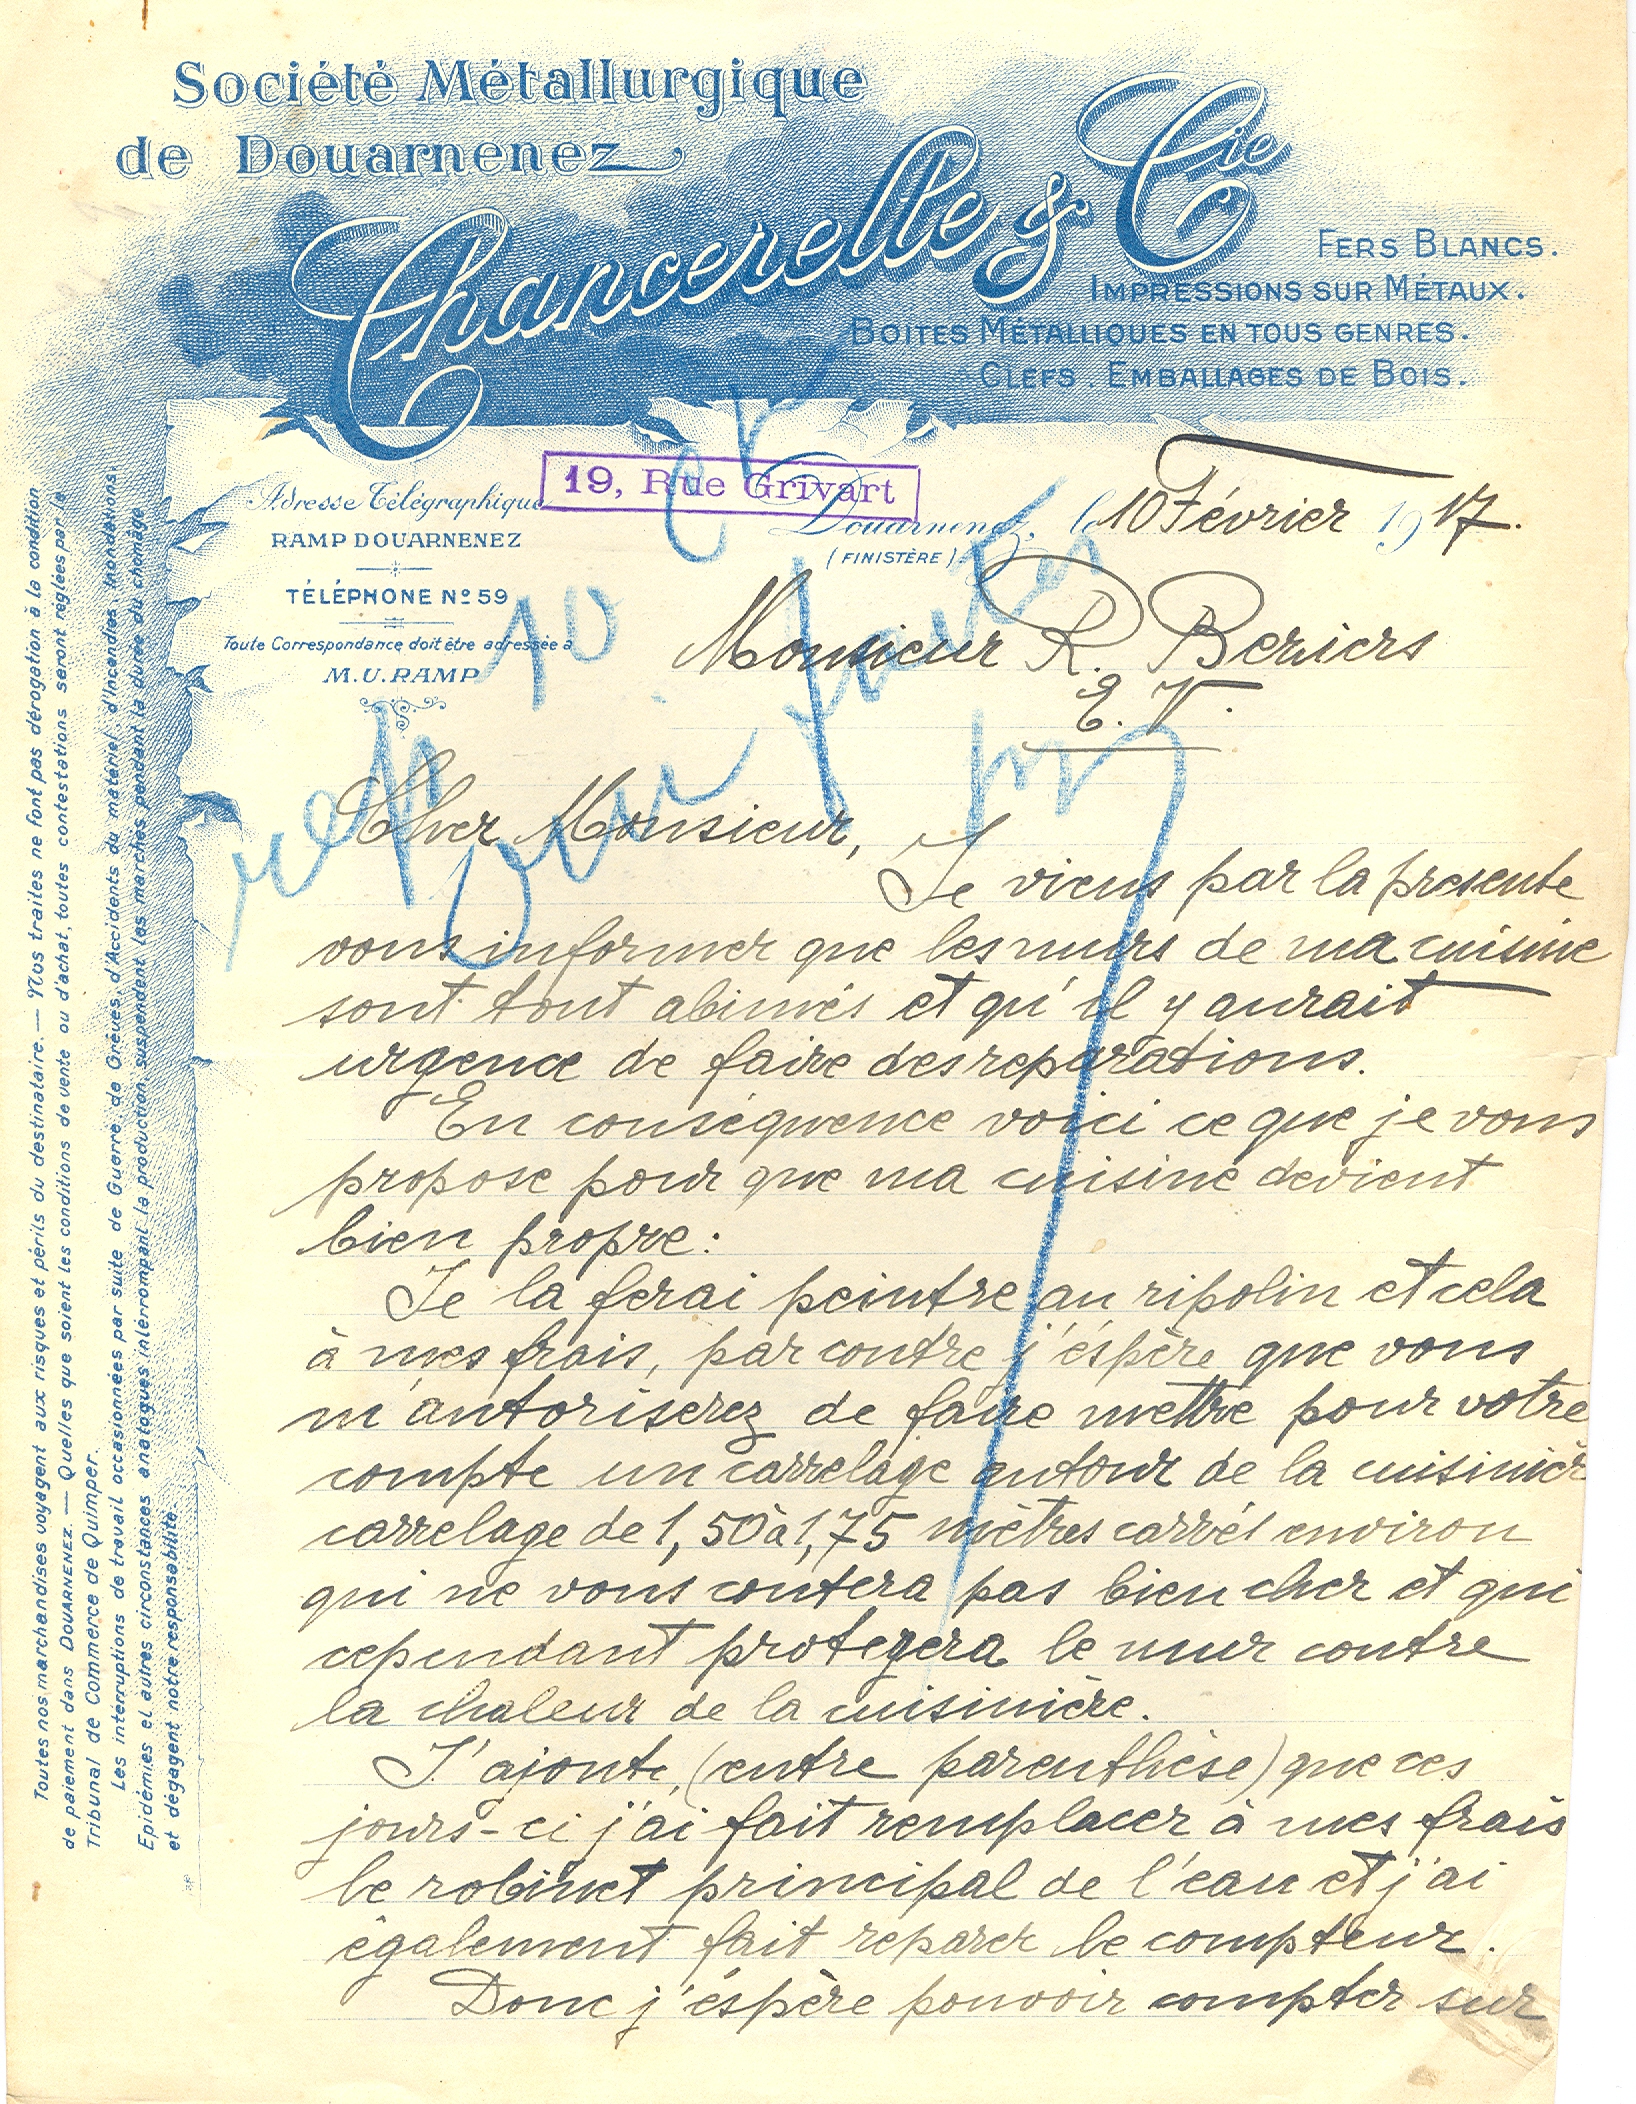 Société Métallurgique
de Douarnenez
Chancerelle & Cie
FERS BLANCS.
IMPRESSIONS SUR MÉTAUX.
BOITES MÉTALLIQUES EN TOUS GENRES.
CLEFS. EMBALLAGES DE BOIS.
19, Rue Grivart
Adresse Télégraphique
RAMP DOUARNENEZ
TÉLÉPHONE No 59
Toute Correspondance doit être adressée à
M. U. RAMP
Douarnenez, le 10 Février 1917.
(FINISTÈRE)
Monsieur R. Beziers
E. V.
Cher Monsieur,
Je viens par la presente
vous informer que les murs de ma cuisine
sont tout abimés et qu'il y aurait
urgence de faire des reparations.
En conséquence voici ce que je vous
propose pour que ma cuisine devient
bien propre:
Je la ferai peintre au ripolin et cela
à mes frais, par contre j'éspère que vous
m'autoriserez de faire mettre pour votre
compte un carrelage autour de la cuisinièr
carrelage de 1,50 à 1,75 mètres carrés environ
qui ne vous coutera pas bien cher et qui
cependant protegera le mur contre
la chaleur de la cuisinière.
J'ajoute, (entre parenthèse) que ces
jours-ci j'ai fait remplacer à mes frais
le robinet principal de l'eau et j'ai
également fait reparer le compteur.
Donc j'éspère pouvoir compter sur
Toutes nos marchandises voyagent aux risques et périls du destinataire. — Nos traites ne font pas dérogation à la condition
de paiement dans DOUARNENEZ. — Quelles que soient les conditions de vente ou d'achat, toutes contestations seront réglées par le
Tribunal de Commerce de Quimper.
Les interruptions de travail occasionnées par suite de Guerre, de Grèves, d'Accidents du matériel, d'Incendies, Inondations
Epidémies et autres circonstances analogues interrompant la production, suspendent les marchés pendant la durée du chomage
et dégagent notre responsabilité.
10